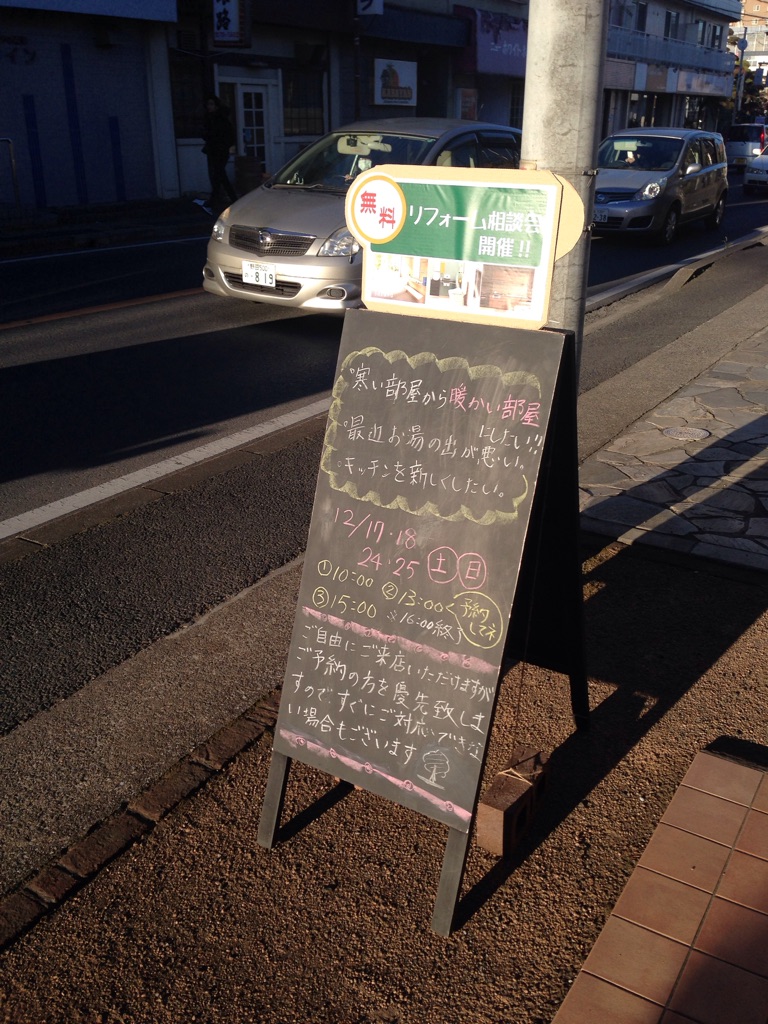 無料
リフォーム相談会
開催!!
寒い部屋から暖かい部屋
にしたい!!
最近お湯の出が悪い。
キッチンを新しくしたい。
12/17・18
24・25 土 日
①10:00 ②13:00 予約
してネ
③15:00 ※16:00終了
ご自由にご来店いただけますが
ご予約の方を優先致しま
すので、すぐにご対応できな
い場合もございます
・819